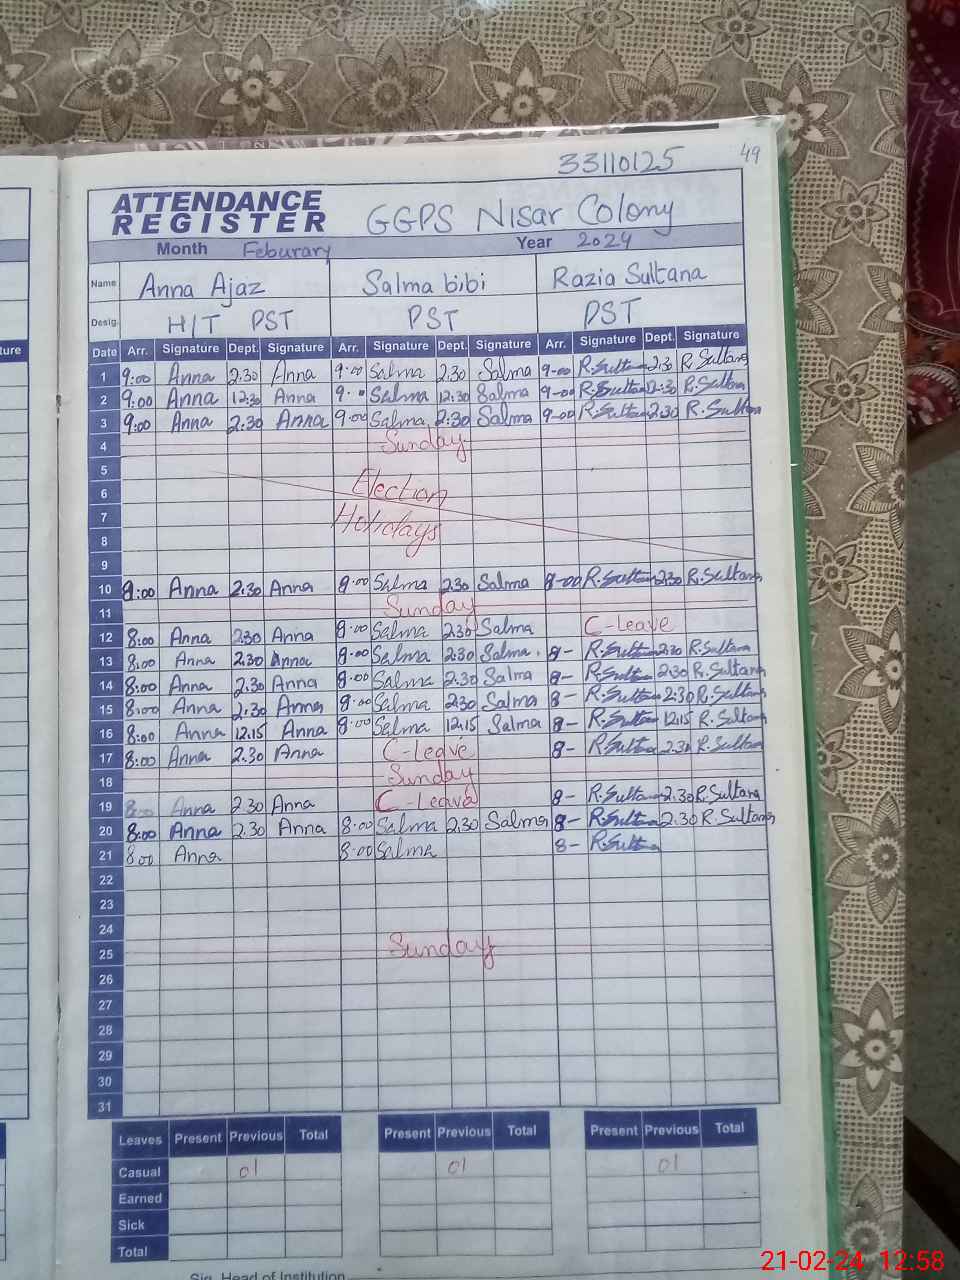 33110125 49
ATTENDANCE
REGISTER GGPS Nisar Colony
Month Feburary Year 2024
Name Anna Ajaz Salma bibi Razia Sultana
Desig. H/T PST PST PST
ture
Date Arr. Signature Dept. Signature Arr. Signature Dept. Signature Arr. Signature Dept. Signature
1 9:00 Anna 2:30 Anna 9:00 Salma 2:30 Salma 9-00 R.Sultana 2:30 R.Sultana
2 9:00 Anna 12:30 Anna 9:00 Salma 12:30 Salma 9-00 R.Sultana 12:30 R.Sultana
3 9:00 Anna 2:30 Anna 9:00 Salma 2:30 Salma 9-00 R.Sultana 2:30 R.Sultana
4 Sunday
5
6 Election
7 Holidays
8
9
10 9:00 Anna 2:30 Anna 9:00 Salma 2:30 Salma 8-00 R.Sultana 2:30 R.Sultana
11 Sunday
12 8:00 Anna 2:30 Anna 8:00 Salma 2:30 Salma C-Leave
13 8:00 Anna 2:30 Anna 8:00 Salma 2:30 Salma. 8- R.Sultana 2:30 R.Sultana
14 8:00 Anna 2:30 Anna 8:00 Salma 2:30 Salma 8- R.Sultana 2:30 R.Sultana
15 8:00 Anna 2:30 Anna 8:00 Salma 2:30 Salma 8- R.Sultana 2:30 R.Sultana
16 8:00 Anna 12.15 Anna 8:00 Salma 12.15 Salma 8- R.Sultana 12.15 R.Sultana
17 8:00 Anna 2.30 Anna C-Leave 8- R.Sultana 2.30 R.Sultana
18 Sunday
19 8:00 Anna 2.30 Anna C-Leave 8- R.Sultana 2.30 R.Sultana
20 8:00 Anna 2.30 Anna 8:00 Salma 2.30 Salma 8- R.Sultana 2.30 R.Sultana
21 8:00 Anna 8:00 Salma 8- R.Sultana
22
23
24
25 Sunday
26
27
28
29
30
31
Leaves Present Previous Total Present Previous Total Present Previous Total
Casual 01 01 01
Earned
Sick
Total
Sig. Head of Institution
21-02-24 12:58